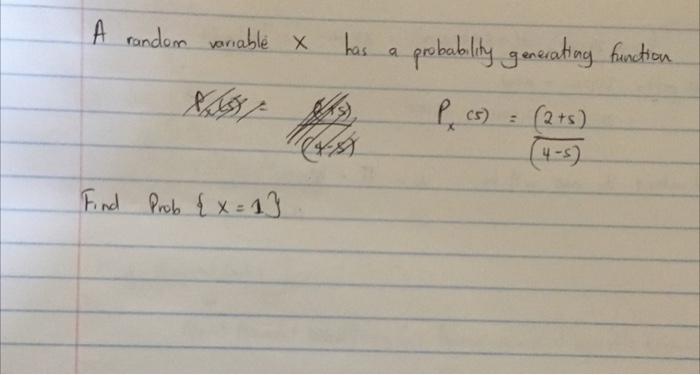 A random variable x has a probability generating function
Pₓ(s) = (2+s)/(4-s)
Find Prob { x = 1 }